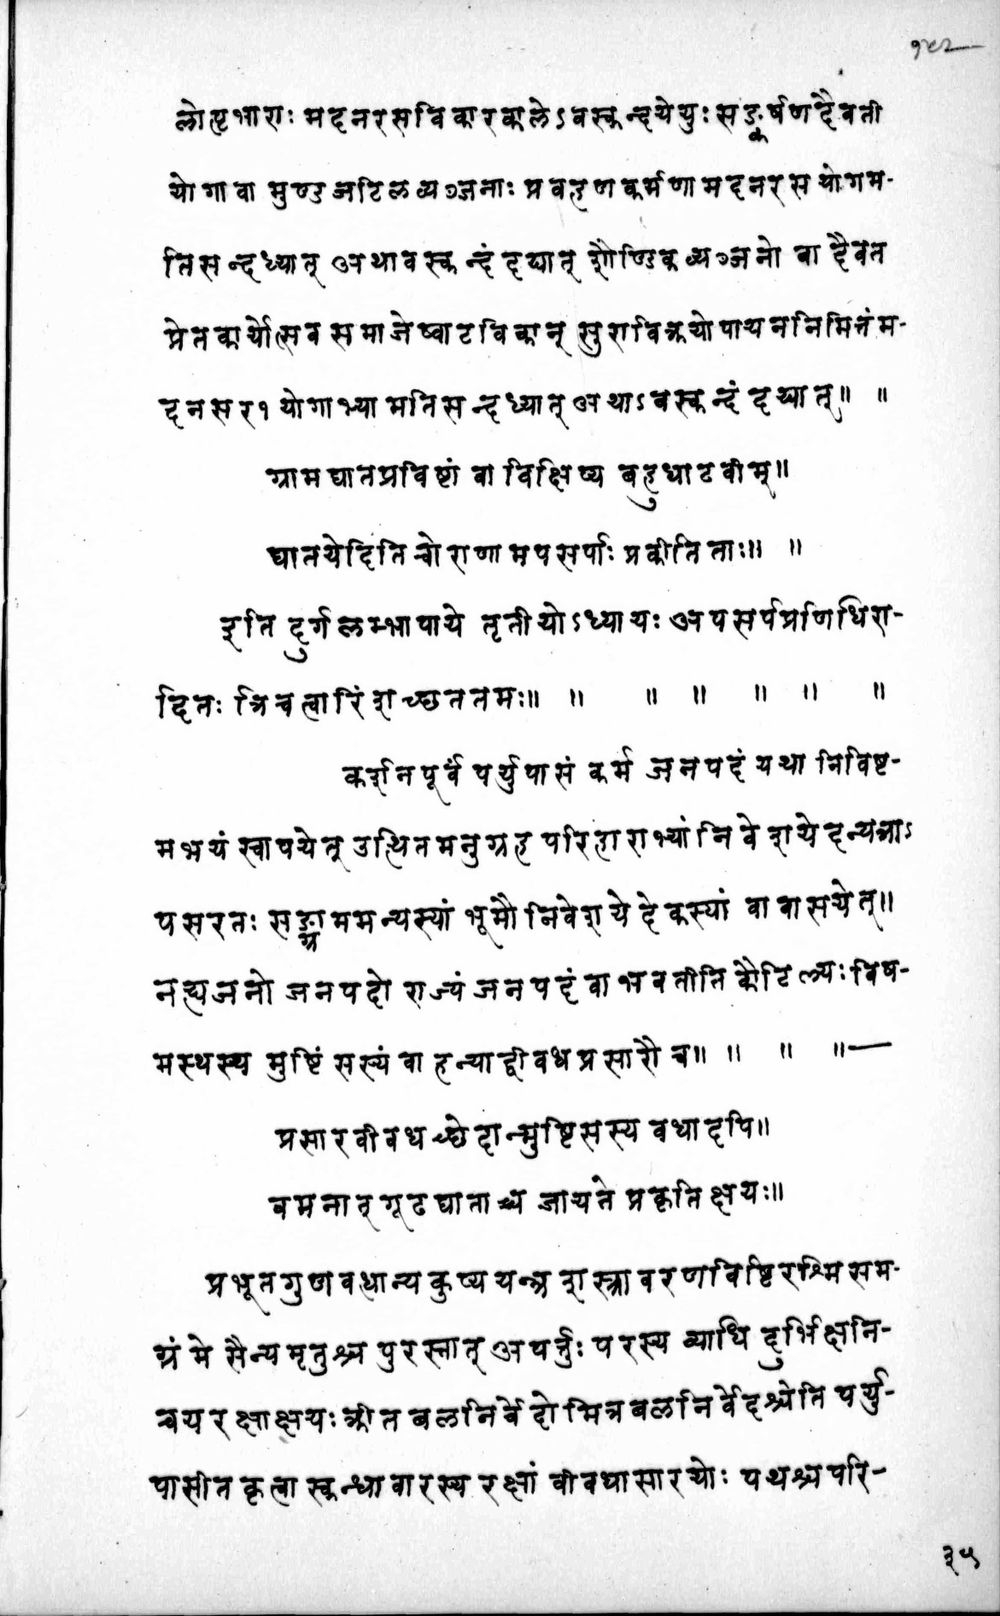 १४२
लोप्तृभाराः मदनरसविकारकालेऽवस्कन्दयेयुः सङ्कर्षणदैवती
योगावा मुण्डजटिलव्यञ्जनाः प्रवहणकर्मणामदनरसयोगम-
तिसन्दध्यात् अथावस्कन्दं दद्यात् शौण्डिकव्यञ्जनो वा दैवत
प्रेतकार्योत्सवसमाजेष्वाटविकान् सुराविक्रयोपायननिमित्तंम-
दनसर१योगाभ्यामतिसन्दध्यात् अथाऽवस्कन्दं दद्यात्॥ ॥
ग्रामघातप्रविष्टां वा विक्षिप्य बहुधाटवीम्॥
घातयेदिति चोराणामपसर्पाः प्रकीर्तिताः॥ ॥
इति दुर्गलम्भापाये तृतीयोऽध्यायः अपसर्पप्रणिधिरा-
दितः त्रिचत्वारिंशच्छततमः॥ ॥ ॥ ॥ ॥ ॥ ॥
कर्शनपूर्वं पर्युपासं कर्म जनपदं यथानिविष्ट-
मभयं स्थापयेत् उत्थितमनुग्रहपरिहाराभ्यां निवेशयेदन्यत्राऽ
पसरतः सङ्ग्राममन्यस्यां भूमौ निवेशयेदेकस्यां वा वासयेत्॥
नह्यजनो जनपदो राज्यं जनपदं वा भवतीति कौटिल्यः विष-
मस्थस्य मुष्टिं सस्यं वा हन्याद्वीवधप्रसारौ च॥ ॥ ॥ ॥—
प्रसारवीवधच्छेदान्मुष्टिसस्यवधादपि॥
वमनात् गूढघाताच्च जायते प्रकृतिक्षयः॥
प्रभूतगुणवद्धान्यकुप्ययन्त्रशस्त्रावरणविष्टिरश्मिसम-
ग्रं मे सैन्यमृतुश्च पुरस्तात् अपर्तुः परस्य व्याधिदुर्भिक्षनि-
चयरक्षाक्षयः क्रीतबलनिर्वेदो मित्रबलनिर्वेदश्चेति पर्यु-
पासीत कृत्वा स्कन्धावारस्य रक्षां वीवधासारयोः पथश्च परि-
३५